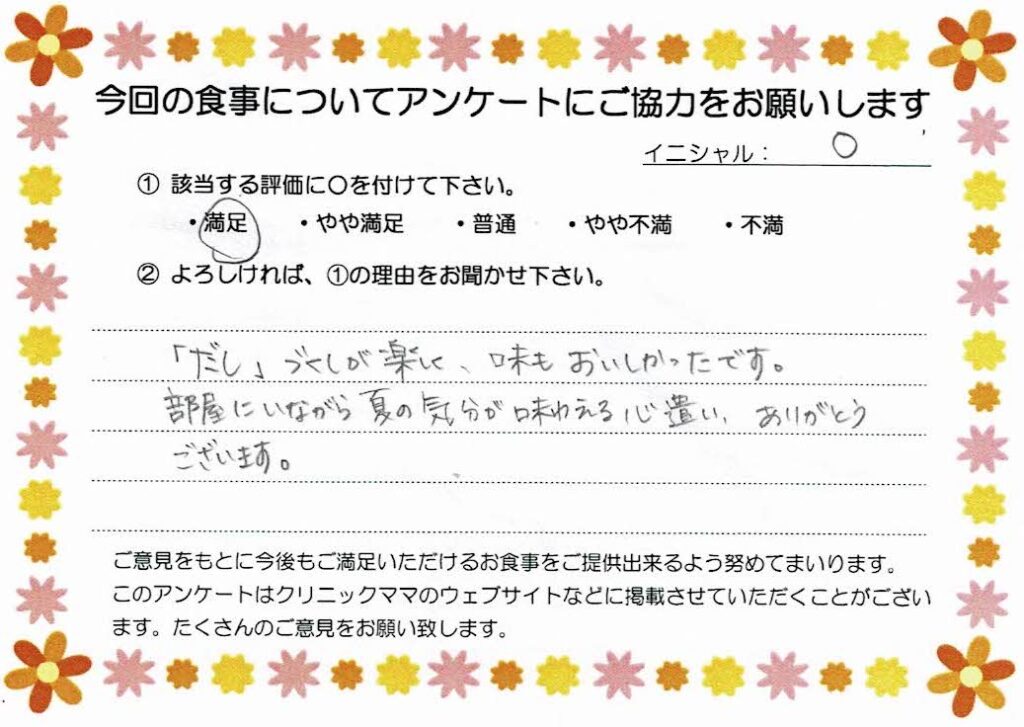 今回の食事についてアンケートにご協力をお願いします
イニシャル： O
① 該当する評価に〇を付けて下さい。
・満足 ・やや満足 ・普通 ・やや不満 ・不満
② よろしければ、①の理由をお聞かせ下さい。
「だし」づくしが楽しく、味もおいしかったです。
部屋にいながら夏の気分が味わえる心遣い、ありがとう
ございます。
ご意見をもとに今後もご満足いただけるお食事をご提供出来るよう努めてまいります。
このアンケートはクリニックママのウェブサイトなどに掲載させていただくことがござい
ます。たくさんのご意見をお願い致します。